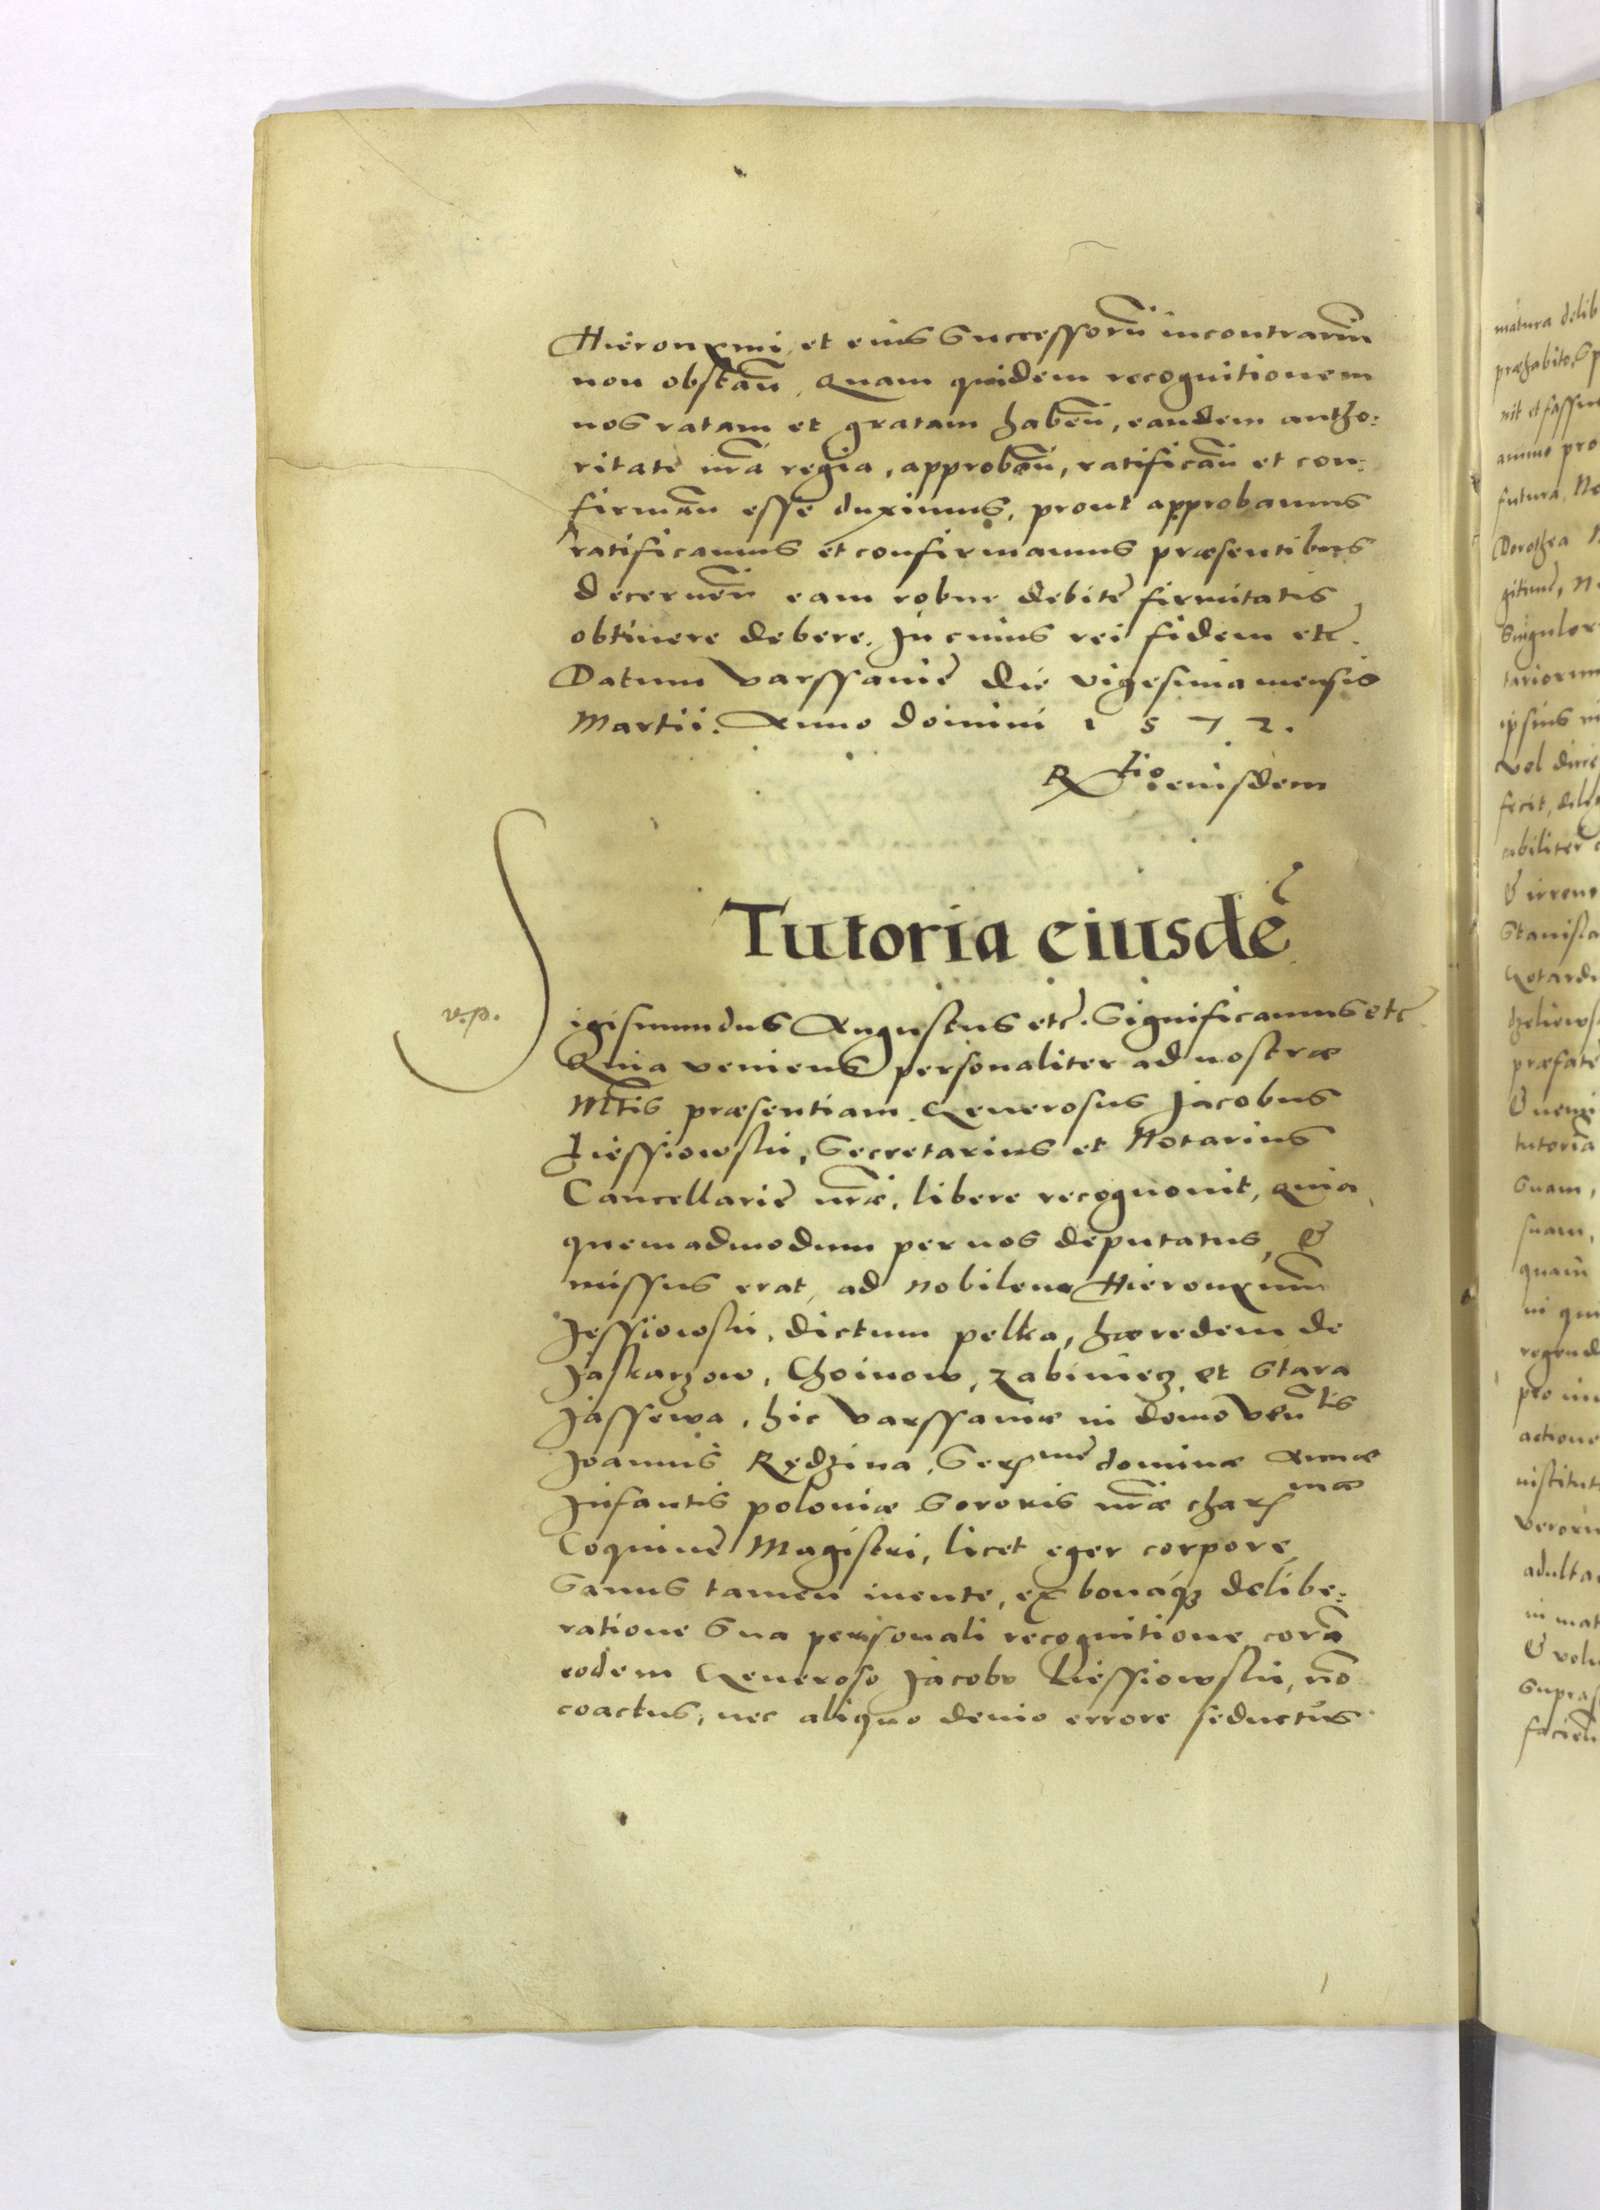 Hieronymi, et eius Successorũ incontrariũ
non obstañ. Quam quidem recognitionem
nos ratam et gratam habeñ, eandem autho:
ritate nrã regia, approbañ, ratificañ et con:
firmañ esse duximus, prout approbamus
ratificamus et confirmamus præsentibus
decerneñ eam robur debitę firmitatis
obtinere debere. In cuius rei fidem etc.
Datum Varssavię die vigesima mensis
Martii. Anno domini 1572.
Rtio eiusdem
Tutoria eiusdẽ
v. p.
Sigismundus Augustus etc. Significamus etc
Quia veniens personaliter ad nostræ
Mtis præsentiam Generosus Jacobus
Liessiowski, Secretarius et Notarius
Cancellarię nræ, libere recognovit, Quia
quemadmodum per nos deputatus, &
missus erat, ad Nobilem Hieronymũ
Jessiowski, dictum pelka, hæredem de
Jaskarzow, Choinow, Zabiniecz, et Stara
Jassewa, hic Varssaviæ in domo
Joannis Rędzina, Sermę dominæ Annæ
Infantis poloniæ Sororis nræ charmæ
Coquinę Magistri, licet eger corpore
Sanus tamen mente, ex bonaq3 delibe:
ratione Sua personali recognitione corã
eodem Generoso Jacobo Liessiowski, nõ
coactus, nec aliquo devio errore seductus
matura delib
præhabito, Sp
nit et fassu
animo pro
futura, No
Dorothea
Singulor
tariorum
ipsius
vel dire
fecit,
abiliter
& irrevo
Stanisla
præfatę
tutoria
Suam,
suam,
quam
regend
pro
actione
institut
Verorũ
adulta
in mat
& volu
Supras
facieñ